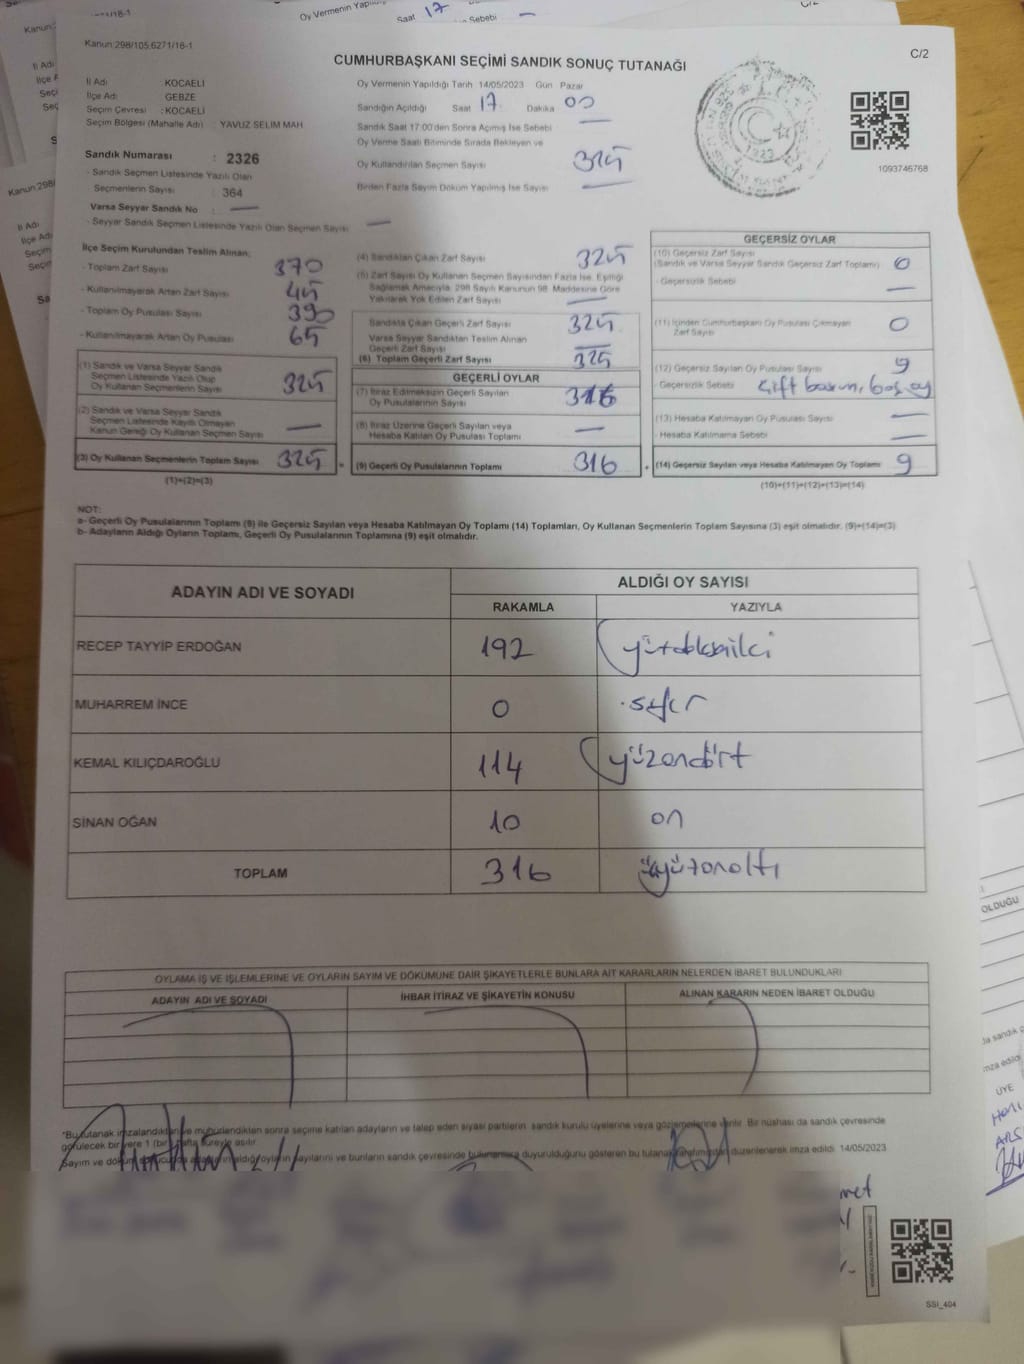 Kanun:298/105,6271/16-1
C/2
CUMHURBAŞKANI SEÇİMİ SANDIK SONUÇ TUTANAĞI
İl Adı : KOCAELİ
İlçe Adı : GEBZE
Seçim Çevresi : KOCAELİ
Seçim Bölgesi (Mahalle Adı) : YAVUZ SELİM MAH
Sandık Numarası : 2326
- Sandık Seçmen Listesinde Yazılı Olan
Seçmenlerin Sayısı : 364
Varsa Seyyar Sandık No : —
- Seyyar Sandık Seçmen Listesinde Yazılı Olan Seçmen Sayısı —
Oy Vermenin Yapıldığı Tarih 14/05/2023 Gün Pazar
Sandığın Açıldığı Saat 17 : Dakika 00
Sandık Saat 17:00'den Sonra Açılmış İse Sebebi —
Oy Verme Saati Bitiminde Sırada Bekleyen ve
Oy Kullandırılan Seçmen Sayısı 325
Birden Fazla Sayım Döküm Yapılmış İse Sayısı —
1093746768
İlçe Seçim Kurulundan Teslim Alınan:
- Toplam Zarf Sayısı 370
- Kullanılmayarak Artan Zarf Sayısı 45
- Toplam Oy Pusulası Sayısı 390
- Kullanılmayarak Artan Oy Pusulası 65
(1) Sandık ve Varsa Seyyar Sandık
Seçmen Listesinde Yazılı Olup
Oy Kullanan Seçmenlerin Sayısı 325
(2) Sandık ve Varsa Seyyar Sandık
Seçmen Listesinde Kayıtlı Olmayan
Kanun Gereği Oy Kullanan Seçmen Sayısı —
(3) Oy Kullanan Seçmenlerin Toplam Sayısı 325
(1)+(2)=(3)
(4) Sandıktan Çıkan Zarf Sayısı 325
(5) Zarf Sayısı Oy Kullanan Seçmen Sayısından Fazla İse, Eşitliği
Sağlamak Amacıyla, 298 Sayılı Kanunun 98. Maddesine Göre
Yakılarak Yok Edilen Zarf Sayısı —
Sandıkta Çıkan Geçerli Zarf Sayısı 325
Varsa Seyyar Sandıktan Teslim Alınan
Geçerli Zarf Sayısı —
(6) Toplam Geçerli Zarf Sayısı 325
GEÇERLİ OYLAR
(7) İtiraz Edilmeksizin Geçerli Sayılan
Oy Pusulalarının Sayısı 316
(8) İtiraz Üzerine Geçerli Sayılan veya
Hesaba Katılan Oy Pusulası Toplamı —
= (9) Geçerli Oy Pusulalarının Toplamı 316
GEÇERSİZ OYLAR
(10) Geçersiz Zarf Sayısı
(Sandık ve Varsa Seyyar Sandık Geçersiz Zarf Toplamı) 0
- Geçersizlik Sebebi —
(11) İçinden Cumhurbaşkanı Oy Pusulası Çıkmayan
Zarf Sayısı 0
(12) Geçersiz Sayılan Oy Pusulası Sayısı 9
- Geçersizlik Sebebi çift basım, boş oy
(13) Hesaba Katılmayan Oy Pusulası Sayısı —
- Hesaba Katılmama Sebebi —
+ (14) Geçersiz Sayılan veya Hesaba Katılmayan Oy Toplamı 9
(10)+(11)+(12)+(13)=(14)
NOT:
a- Geçerli Oy Pusulalarının Toplamı (9) ile Geçersiz Sayılan veya Hesaba Katılmayan Oy Toplamı (14) Toplamları, Oy Kullanan Seçmenlerin Toplam Sayısına (3) eşit olmalıdır. (9)+(14)=(3)
b- Adayların Aldığı Oyların Toplamı, Geçerli Oy Pusulalarının Toplamına (9) eşit olmalıdır.
ADAYIN ADI VE SOYADI ALDIĞI OY SAYISI
RAKAMLA YAZIYLA
RECEP TAYYİP ERDOĞAN 192
MUHARREM İNCE 0 sıfır
KEMAL KILIÇDAROĞLU 114 yüzondört
SİNAN OĞAN 10 on
TOPLAM 316 üçyüzonaltı
OYLAMA İŞ VE İŞLEMLERİNE VE OYLARIN SAYIM VE DÖKÜMÜNE DAİR ŞİKAYETLERLE BUNLARA AİT KARARLARIN NELERDEN İBARET BULUNDUKLARI
ADAYIN ADI VE SOYADI İHBAR İTİRAZ VE ŞİKAYETİN KONUSU ALINAN KARARIN NEDEN İBARET OLDUĞU
*Bu tutanak imzalandıktan ve mühürlendikten sonra seçime katılan adayların ve talep eden siyasi partilerin sandık kurulu üyelerine veya gözlemcilerine verilir. Bir nüshası da sandık çevresinde
görülecek bir yere 1 (bir) hafta süreyle asılır.
Sayım ve döküm sonucunda adayların aldığı oyların sayılarını ve bunların sandık çevresinde bulunanlara duyurulduğunu gösteren bu tutanak tarafımızdan düzenlenerek imza edildi. 14/05/2023
SSİ_404